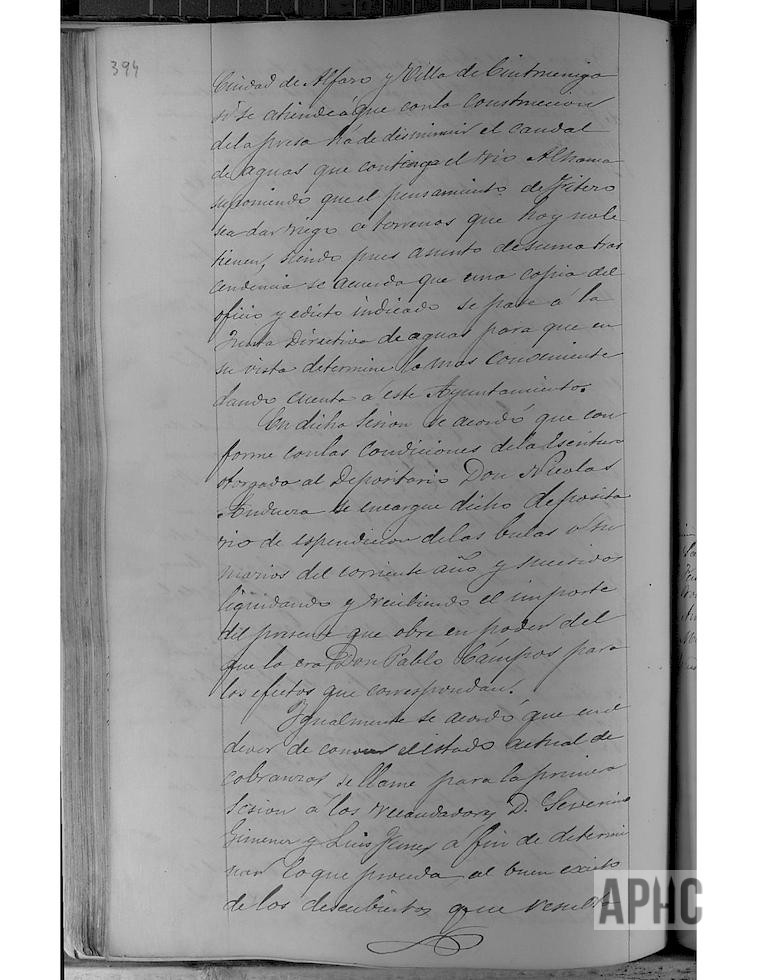 394
Ciudad de Alfaro y Villa de Cintruenigo
si se atiende á que con la construccion
de la presa há de disminuir el caudal
de aguas que contenga el rio Alhama
suponiendo que el pensamiento de Fitero
sea dar riego a terrenos que hoy no le
tienen, siendo pues asunto de suma tras
cendencia se acuerda que una copia del
oficio y edicto indicado se pase á la
Junta Directiva de aguas para que en
su vista determine lo mas conveniente
dando cuenta á este Ayuntamiento.
En dicha Sesion se acordó que con
forme con las condiciones de la Escritura
otorgada al Depositario Don Nicolas
se encargue dicho deposita
rio de espendicion de las bulas o su
marios del corriente año y sucesivos
liquidando y recibiendo el importe
del presente que obra en poder del
que lo era Don Pablo Campos para
los efectos que correspondan.
Igualmente se acordó que en el
dever de conocer el estado actual de
cobranzas se llame para la primera
Sesion a los recaudadores D. Severino
Gimenez y Luis á fin de determi
nar lo que proceda al buen exito
de los descubiertos que result
APHC